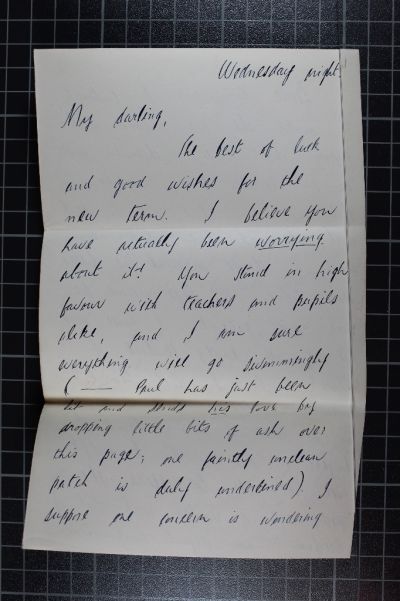 Wednesday night.
My darling,
The best of luck
and good wishes for the
new term. I believe you
have actually been worrying
about it! You stand in high
favour with teachers and pupils
alike, and I am sure
everything will go swimmingly
( — Paul has just been
in and sends his love by
dropping little bits of ash over
this page; one faintly unclean
patch is duly underlined). I
suppose one concern is wondering